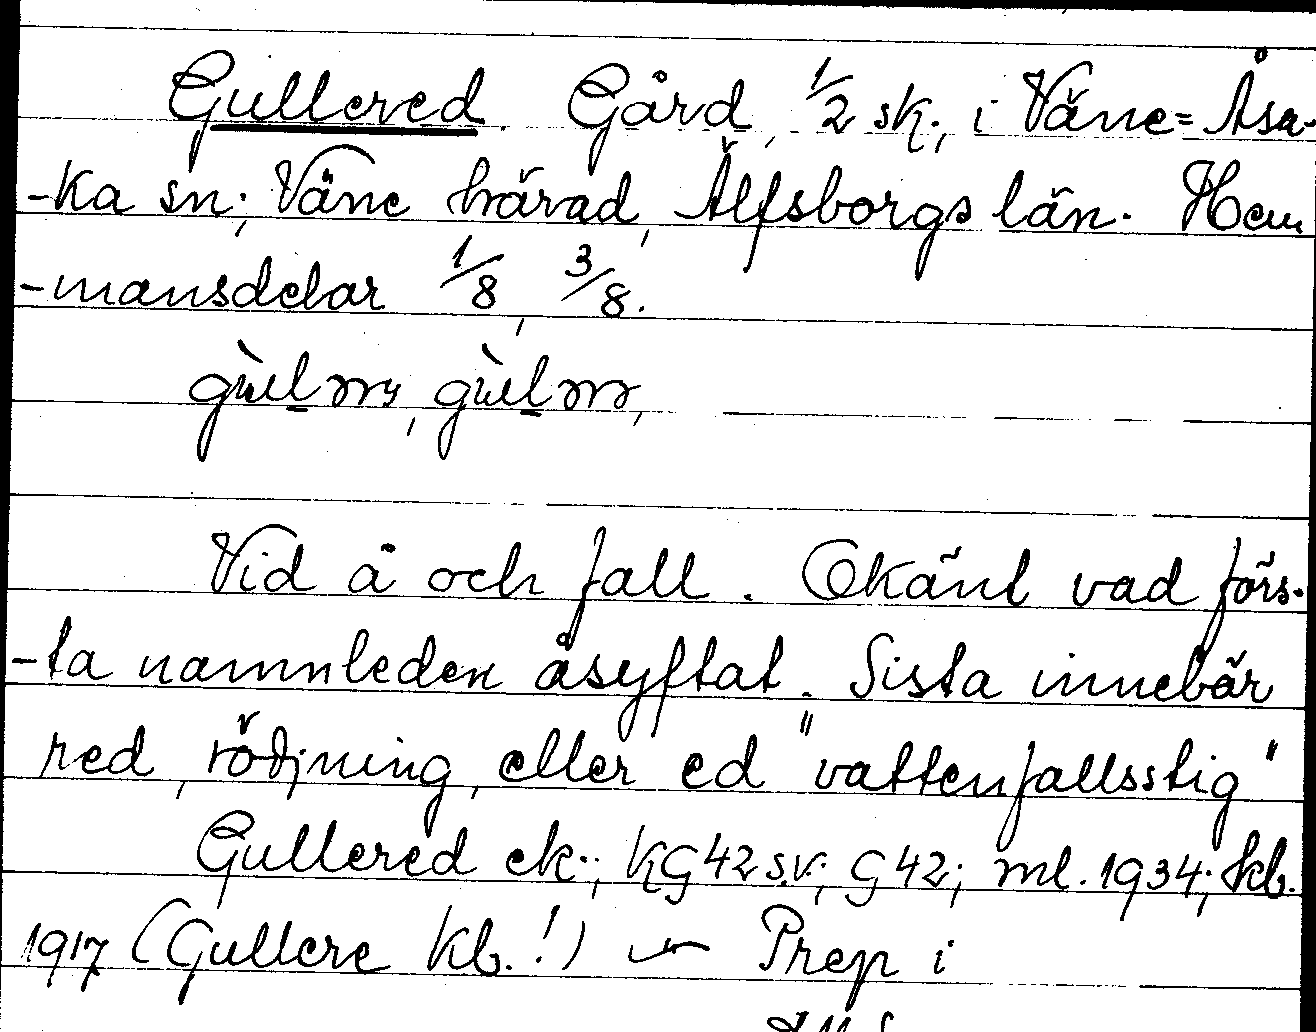 Gullered. Gård, 1/2 sk., i Väne=Åsa-
-ka sn; Väne härad, Älfsborgs län. Hem
-mansdelar 1/8, 3/8.
Vid å och fall. Okänt vad förs-
-ta namnleden åsyftat. Sista innebär
red, rödjning, eller ed "vattenfallsstig"
Gullered ek.; KG42 s.v.; G42; ml. 1934; kb.
1917 (Gullere kb.!) Prep i